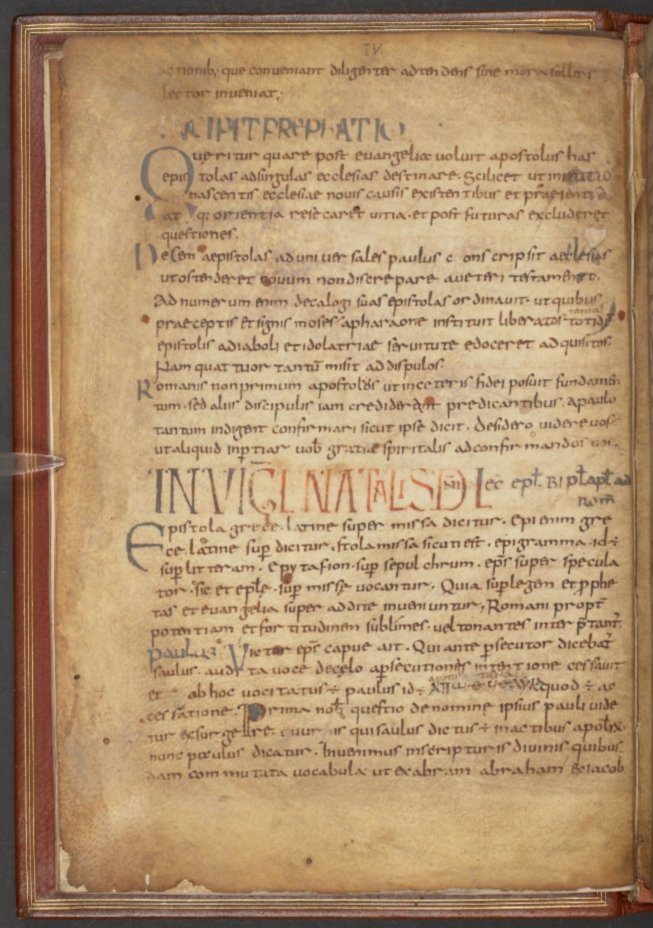 IV
ctionib; que conueniant diligenter adtendens sine mora sollers
lector inueniat;
INCIPIT PREPHATIO
Queritur quare post euangelia uoluit apostolus has
epistolas adsingulas ecclesias destinare. Scilicet ut
nascentis ecclesiae nouis causis existentibus et
orientia resecaret uitia. et post futuras excluderet
questiones.
epistolas ad uniuersales paulus conscripsit aeclesias
ut ostenderet nouum non discrepare aueteri testamento.
Ad numerum enim decalogi suas epistolas ordinauit. ut quibus
praeceptis et signis moses apharaone instituit liberatos totidē
epistolis adiaboli et idolatriae seruitute edoceret adquisitos.
Nam quattuor tantū misit ad dispulos.
Romanis non primum apostolus ut in ceteris fidei posuit fundamen
tum. sed aliis discipulis iam crediderant predicantibus. apaulo
tantum indigent confirmari sicut ipse dicit. desidero uidere uos.
ut aliquid inptiar uob gratiae spiritalis ad confirmandos uos.
IN UIGL NATALIS DNI Lec epl. BI pl apl ad
Rom
Epistola grece. latine super missa dicitur. Epi enim gre
ce latine sup dicitur. stola missa sicuti est. epigramma. id ÷
sup litteram. Epytafion. sup sepulchrum. eps super specula
tor. sic et eple. sup misse uocantur. Quia sup legem et pphe
tas et euangelia super addite inueniuntur, Romani propt
potentiam et fortitudinem sublimes. uel tonantes interptant.
paulus. Uictor eps capue ait. Qui ante psecutor dicebat
saulus. audita uoce decelo apsecutionis intentione cessauit
et ab hoc uocitatus ÷ paulus id ÷ quod ÷ ac
cessatione. Prima nob questio de nomine ipsius pauli uide
tur exsurgere. cur is qui saulus dictus ÷ in actibus apolix.
nunc paulus dicatur. Inuenimus in scripturis diuinis quibus
dam commutata uocabula ut ex abram abraham ex iacob